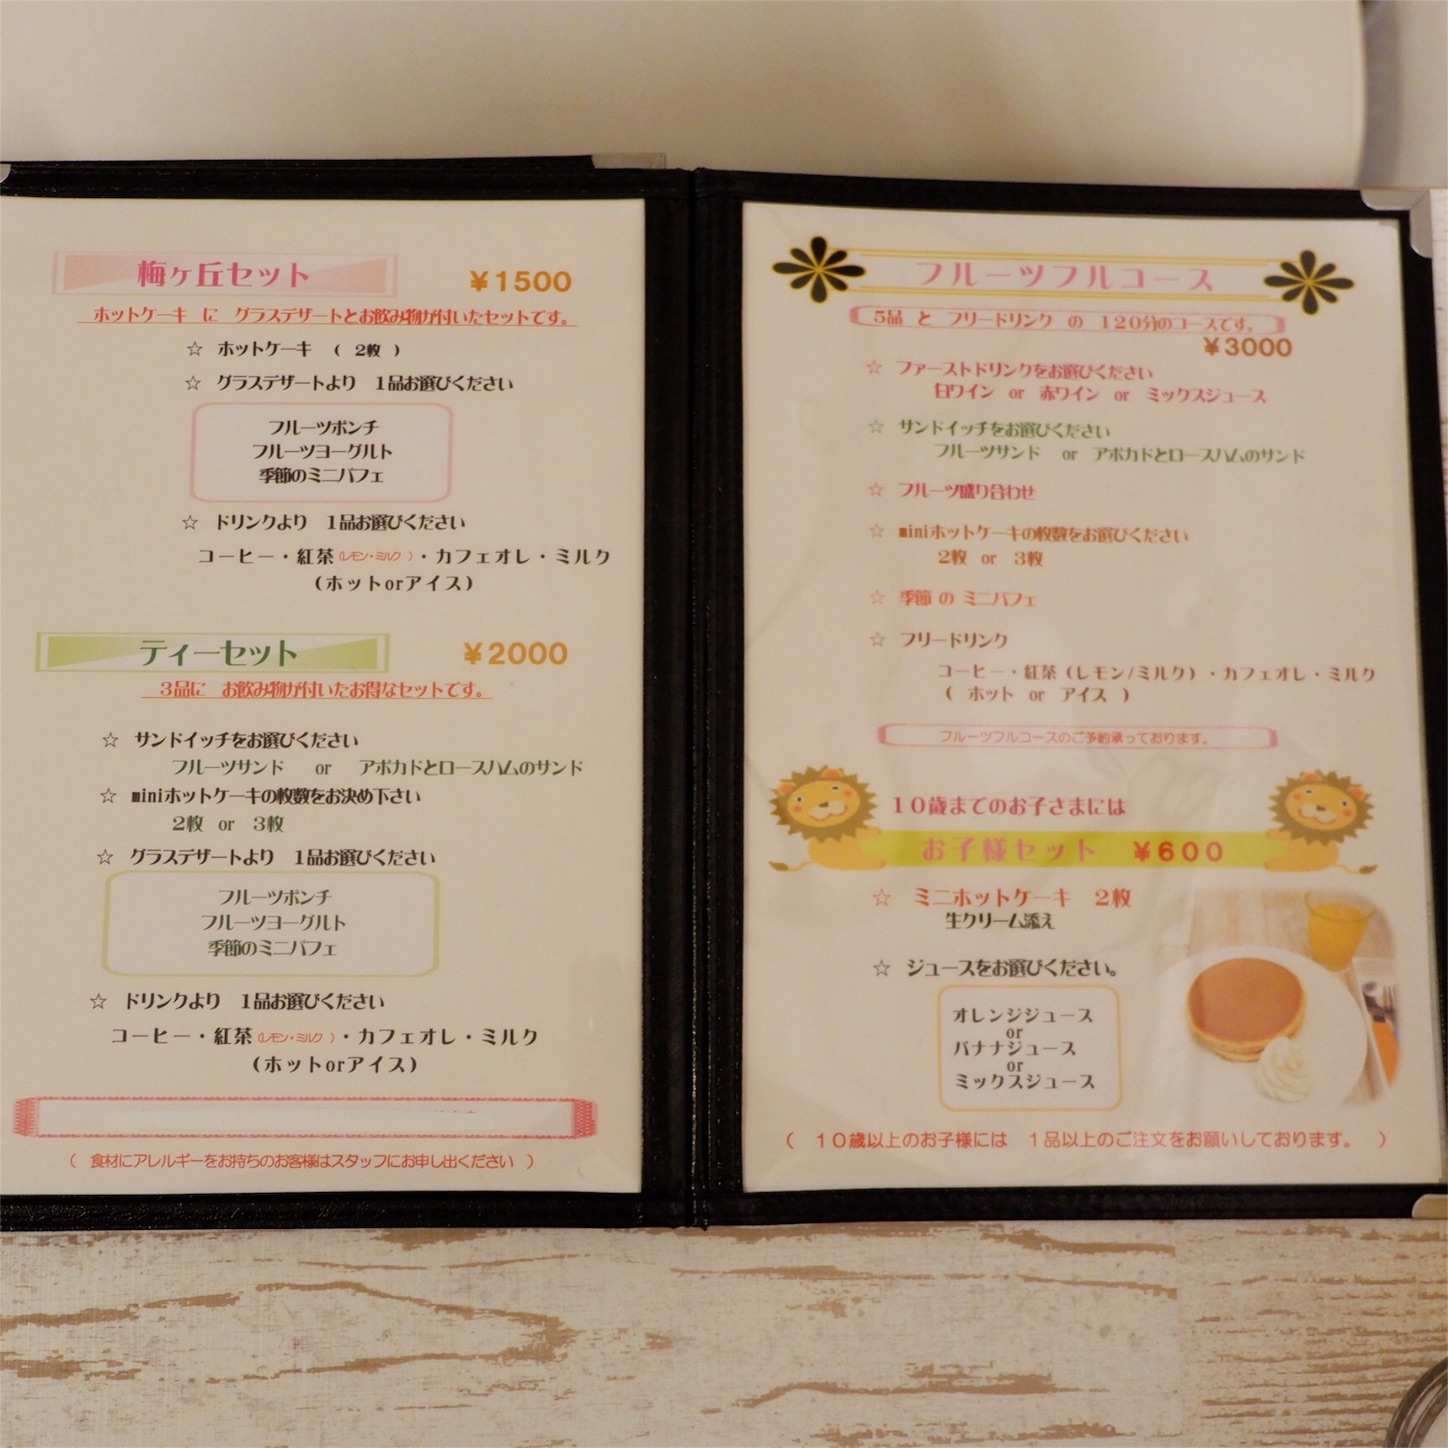 梅ヶ丘セット
￥1500
ホットケーキ に グラスデザートとお飲み物が付いたセットです。
☆ ホットケーキ （ 2枚 ）
☆ グラスデザートより 1品お選びください
フルーツポンチ
フルーツヨーグルト
季節のミニパフェ
☆ ドリンクより 1品お選びください
コーヒー・紅茶（レモン・ミルク ）・カフェオレ・ミルク
（ホットorアイス）
ティーセット
￥2000
3品に お飲み物が付いたお得なセットです。
☆ サンドイッチをお選びください
フルーツサンド or アボカドとロースハムのサンド
☆ miniホットケーキの枚数をお決め下さい
2枚 or 3枚
☆ グラスデザートより 1品お選びください
フルーツポンチ
フルーツヨーグルト
季節のミニパフェ
☆ ドリンクより 1品お選びください
コーヒー・紅茶（レモン・ミルク ）・カフェオレ・ミルク
（ホットorアイス）
（ 食材にアレルギーをお持ちのお客様はスタッフにお申し出ください ）
フルーツフルコース
5品 と フリードリンク の 120分のコースです。
￥3000
☆ ファーストドリンクをお選びください
白ワイン or 赤ワイン or ミックスジュース
☆ サンドイッチをお選びください
フルーツサンド or アボカドとロースハムのサンド
☆ フルーツ盛り合わせ
☆ miniホットケーキの枚数をお選びください
2枚 or 3枚
☆ 季節 の ミニパフェ
☆ フリードリンク
コーヒー・紅茶（レモン/ミルク）・カフェオレ・ミルク
（ ホット or アイス ）
フルーツフルコースのご予約承っております。
10歳までのお子さまには
お子様セット ￥600
☆ ミニホットケーキ 2枚
生クリーム添え
☆ ジュースをお選びください。
オレンジジュース
or
バナナジュース
or
ミックスジュース
（ 10歳以上のお子様には 1品以上のご注文をお願いしております。 ）